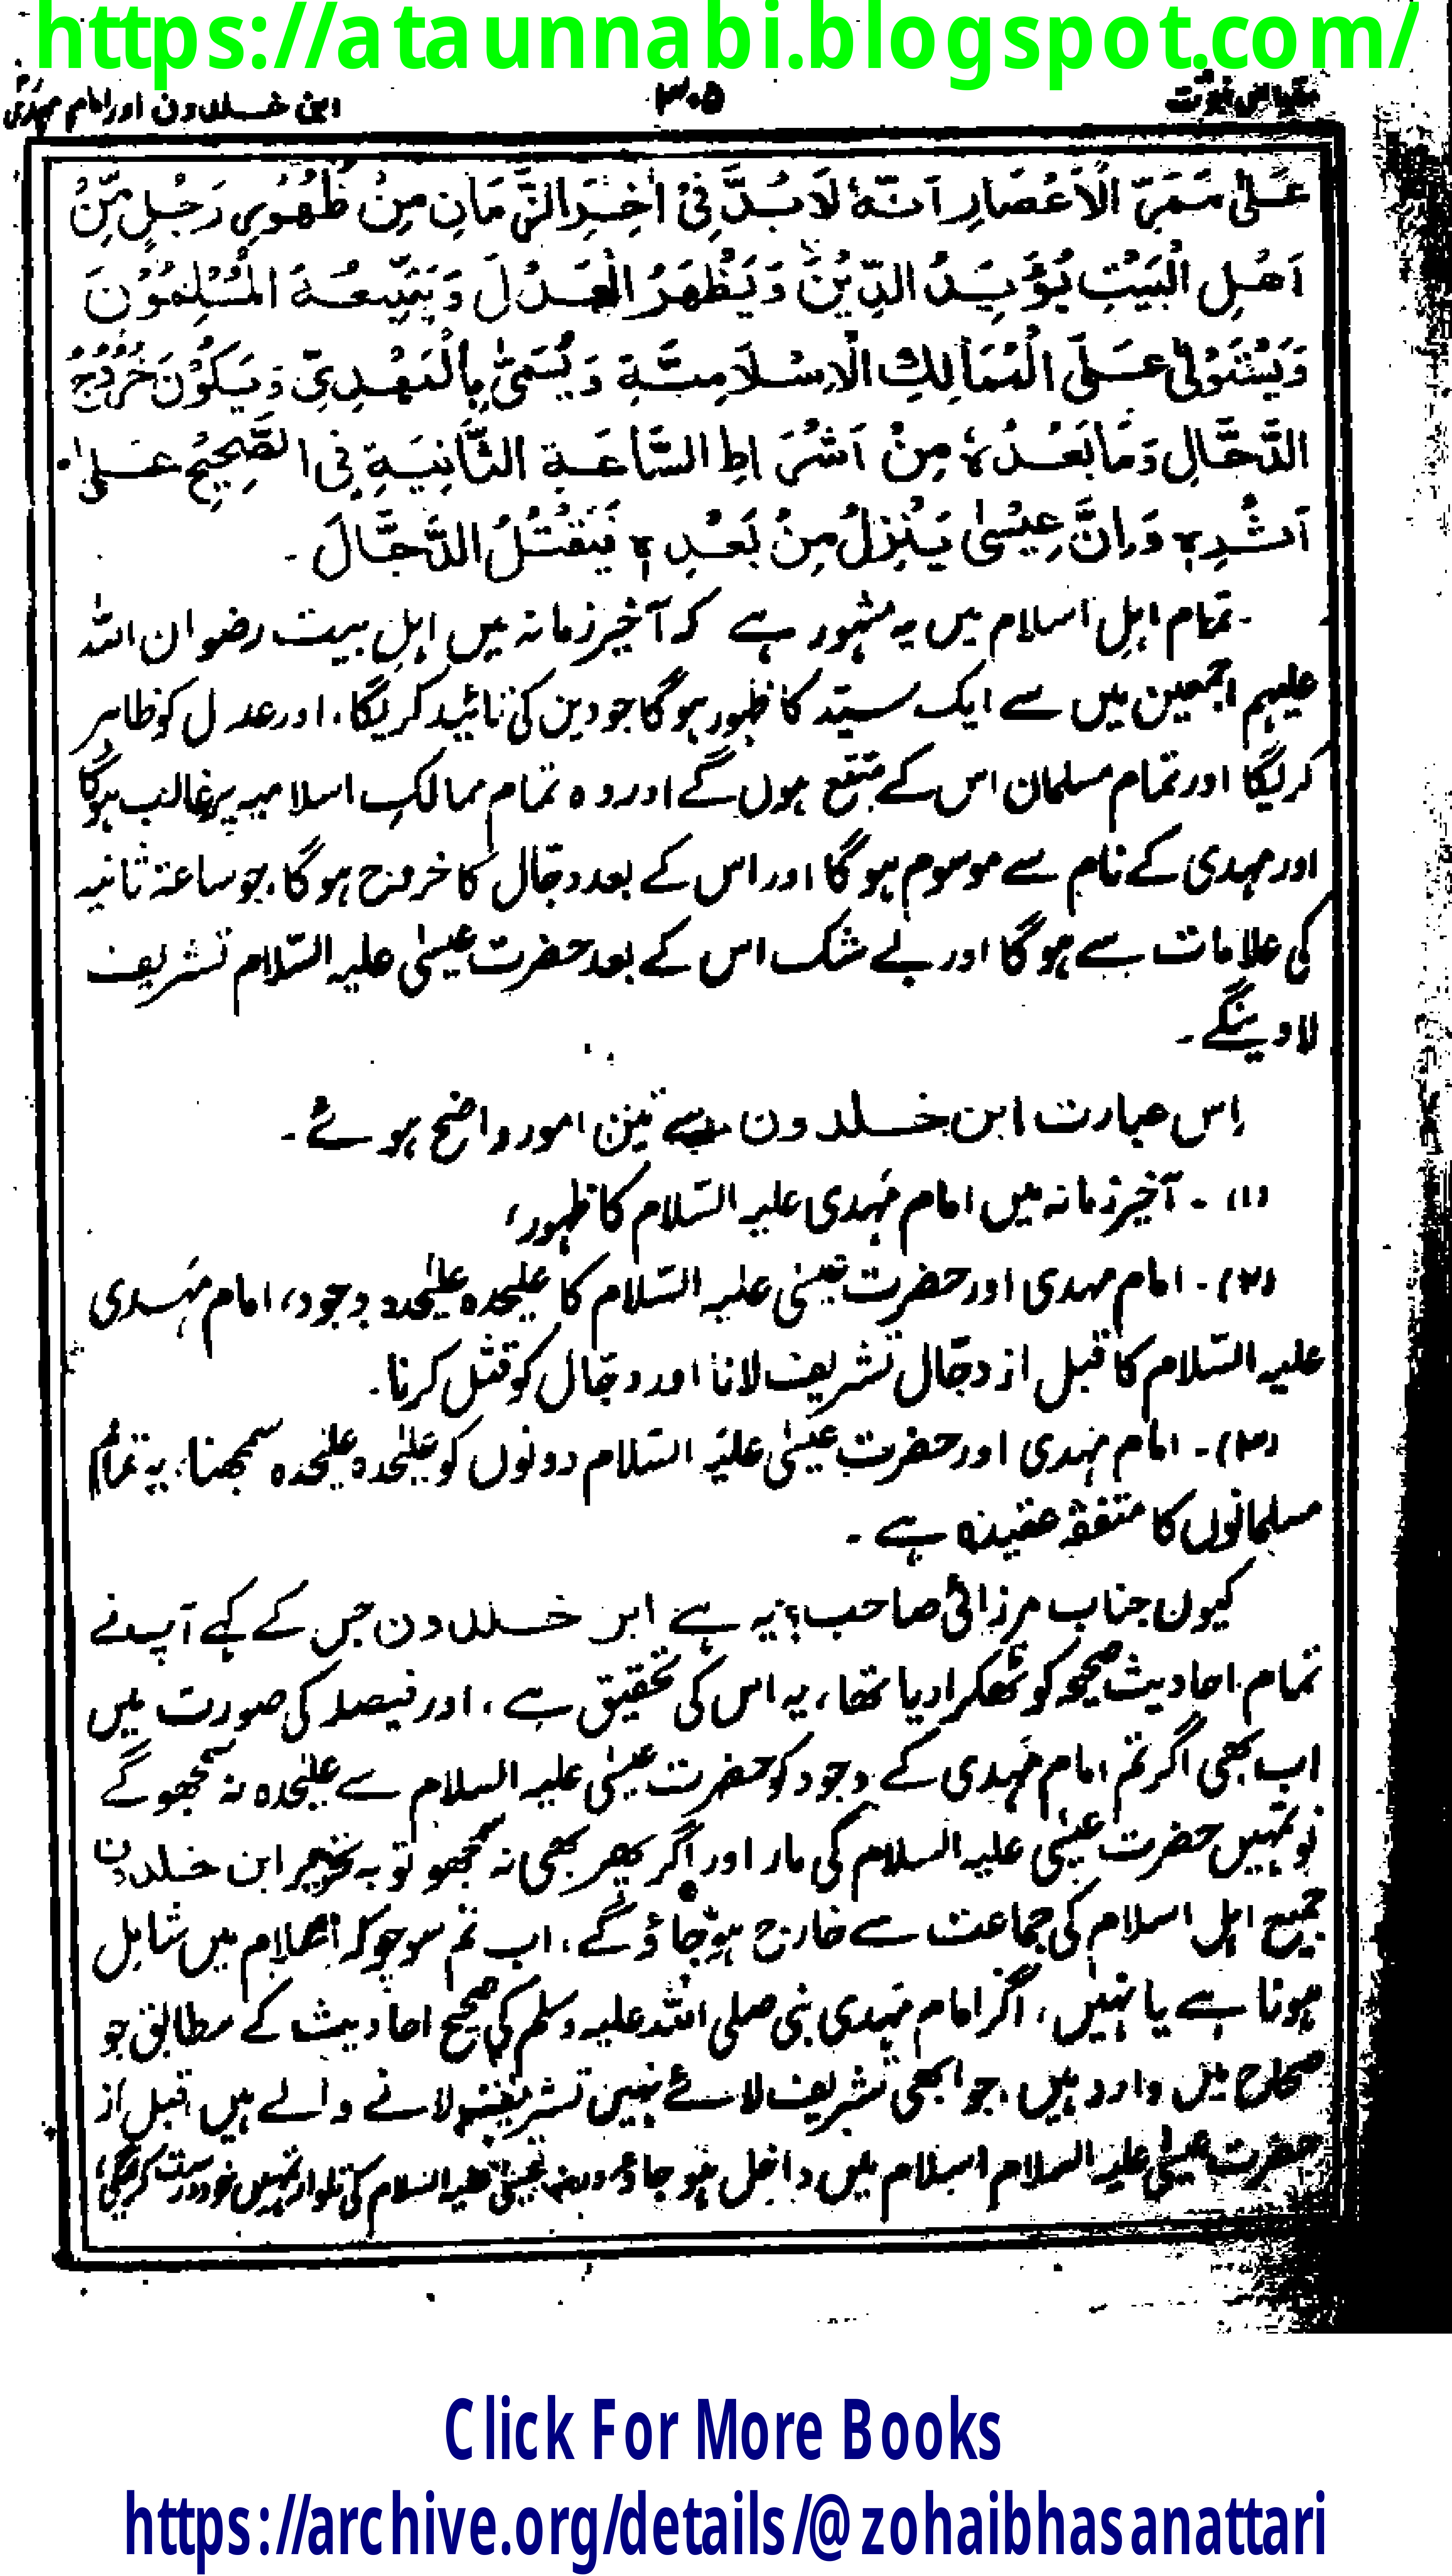 https://ataunnabi.blogspot.com/
مقیاس نبوت ۳۰۵ ابن خلدون اور امام مہدی
عَلٰی مَمَرِّ الْاَعْصَارِ اَنَّہٗ لَا بُدَّ فِیْ اٰخِرِ الزَّمَانِ مِنْ ظُھُوْرِ رَجُلٍ مِّنْ
اَھْلِ الْبَیْتِ یُؤَیِّدُ الدِّیْنَ وَیَظْھَرُ الْعَدْلَ وَیَتَّبِعُہَ الْمُسْلِمُوْنَ
وَیَسْتَوْلِیْ عَلَی الْمَمَالِكِ الْاِسْلَامِیَّةِ وَیُسَمّٰی بِالْمَھْدِیِّ وَیَکُوْنَ خُرُوْجُ
الدَّجَّالِ وَمَا بَعْدُہٗ مِنْ اَشْرَاطِ السَّاعَةِ الثَّانِیَةِ فِی الصَّحِیْحِ عَلٰی
اَثْرِہٖ وَاِنَّ عِیْسٰی یَنْزِلُ مِنْ بَعْدِہٖ فَیَقْتُلُ الدَّجَّالَ ۔
تمام اہلِ اسلام میں یہ مشہور ہے کہ آخیر زمانہ میں اہلِ بیت رضوان اللہ
علیہم اجمعین میں سے ایک سیّد کا ظہور ہوگا جو دین کی تائید کریگا، اور عدل کو ظاہر
کریگا اور تمام مسلمان اس کے متبع ہوں گے اور وہ تمام ممالکِ اسلامیہ پر غالب ہوگا
اور مہدی کے نام سے موسوم ہوگا اور اس کے بعد دجّال کا خروج ہوگا، جو ساعۃ ثانیہ
کی علامات سے ہوگا اور بے شک اس کے بعد حضرت عیسٰی علیہ السّلام تشریف
لاوینگے ۔
اِس عبارت ابن خلدون سے تین امور واضح ہوئے ۔
(۱) ۔ آخیر زمانہ میں امام مَہدی علیہ السّلام کا ظہور،
(۲) ۔ امام مہدی اور حضرت عیسٰی علیہ السّلام کا علیٰحدہ علیٰحدہ وجود، امام مَہدی
علیہ السّلام کا قبل از دجّال تشریف لانا اور دجّال کو قتل کرنا ۔
(۳) ۔ امام مہدی اور حضرت عیسٰی علیہ السّلام دونوں کو علیٰحدہ علیٰحدہ سمجھنا، یہ تمام
مسلمانوں کا متفقہ عقیدہ ہے ۔
کیوں جناب مرزائی صاحب؟ یہ ہے ابن خلدون جس کے کہے آپ نے
تمام احادیث صحیحہ کو ٹھکرا دیا تھا، یہ اس کی تحقیق ہے، اور فیصلہ کی صورت میں
اب بھی اگر تم امام مَہدی کے وجود کو حضرت عیسٰی علیہ السلام سے علیٰحدہ نہ سمجھو گے
تو تمہیں حضرت عیسٰی علیہ السلام کی مار اور اگر پھر بھی نہ سمجھو تو بہ تحریر ابن خلدون
جمیع اہل اسلام کی جماعت سے خارج ہو جاؤ گے، اب تم سوچو کہ اسلام میں شامل
ہونا ہے یا نہیں، اگر امام مَہدی نبی صلی اللہ علیہ وسلم کی صحیح احادیث کے مطابق جو
صحاح میں وارد ہیں، جو ابھی تشریف لائے نہیں تشریف لانے والے ہیں، قبل از
حضرت عیسٰی علیہ السلام اسلام میں داخل ہو جاؤ ورنہ عیسٰی علیہ السلام کی تلوار تمہیں خود درست کریگی،
Click For More Books
https://archive.org/details/@zohaibhasanattari